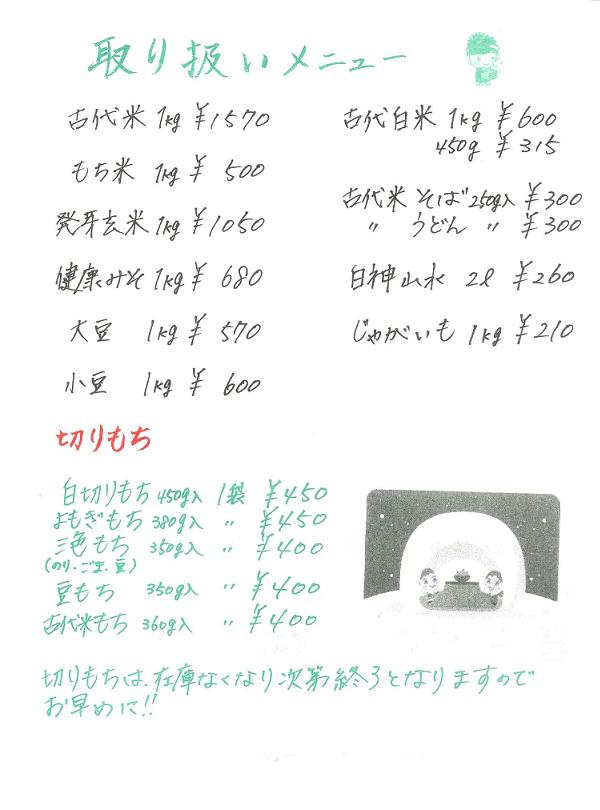 取り扱いメニュー
古代米 1kg ¥1570
もち米 1kg ¥ 500
発芽玄米 1kg ¥1050
健康みそ 1kg ¥ 680
大豆 1kg ¥ 570
小豆 1kg ¥ 600
古代白米 1kg ¥600
450g ¥315
古代米 そば 250g入 ¥300
〃 うどん 〃 ¥300
白神山水 2l ¥260
じゃがいも 1kg ¥210
切りもち
白切りもち 450g入 1袋 ¥450
よもぎもち 380g入 〃 ¥450
三色もち 350g入 〃 ¥400
(のり、ごま、豆)
豆もち 350g入 〃 ¥400
古代米もち 360g入 〃 ¥400
切りもちは、在庫なくなり次第終了となりますので
お早めに!!